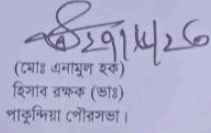 ২৭/৮/২৬
(মোঃ এনামুল হক)
হিসাব রক্ষক (ভাঃ)
পাকুন্দিয়া পৌরসভা।